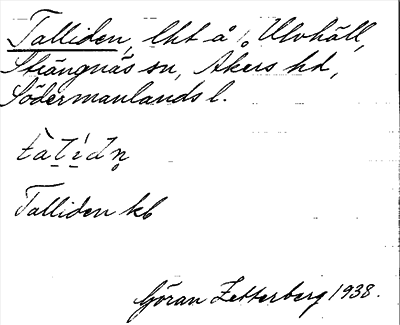 Talliden, lht å Ulvhäll,
Strängnäs sn, Åkers hd,
Södermanlands l.
Talliden kb
Göran Zetterberg 1938.